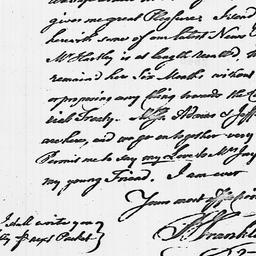 gives me great Pleasure. I send
herewith some of our latest News
Mr Hartley is at length recalled
remained here Six Months without
or proposing any thing towards the
cial Treaty. Messrs Adams & Jeff
are here, and we go on together very
Permit me to say my Love to Mrs Jay
my young Friend. I am ever
Yours most affectio
I shall write you
by next Packet
B Frankl